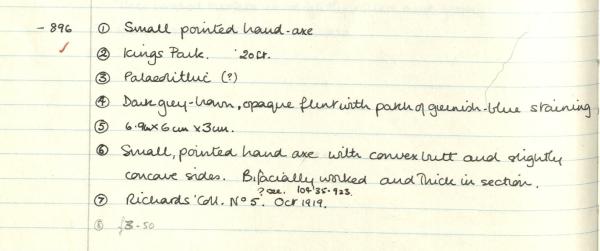 - 896 ① Small pointed hand-axe
② Kings Park. 20 ct.
③ Palaeolithic (?)
④ Dark grey-brown, opaque flint with patch of greenish-blue staining
⑤ 6.9cm x 6cm x 3cm.
⑥ Small, pointed hand axe with convex butt and slightly
concave sides. Bifacially worked and thick in section.
? acc. 104'35.923
⑦ Richards' Coll. Nº 5. Oct 1919.
⑧ £3-50